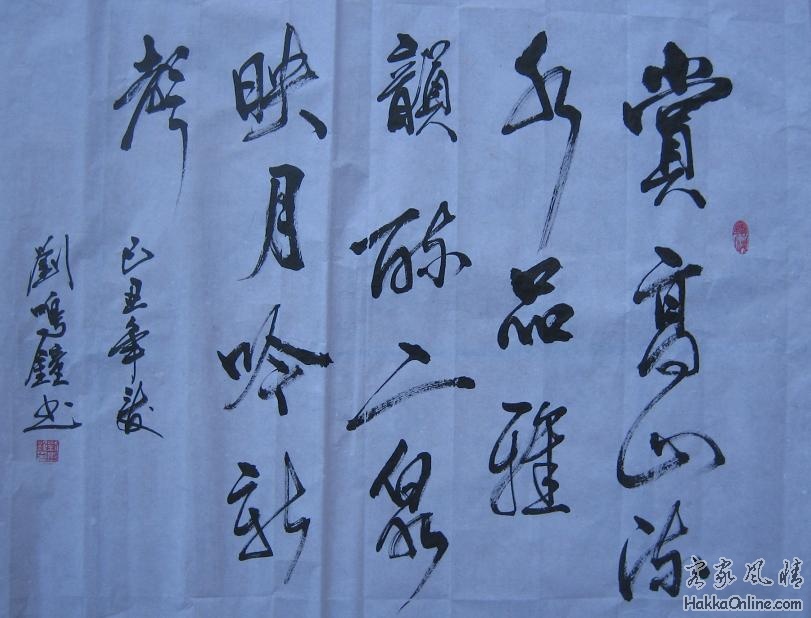 賞高山流
水品雅
韻二泉
映月吟新
聲
己丑年
劉鳴鐘书
客家風情
HakkaOnline.com